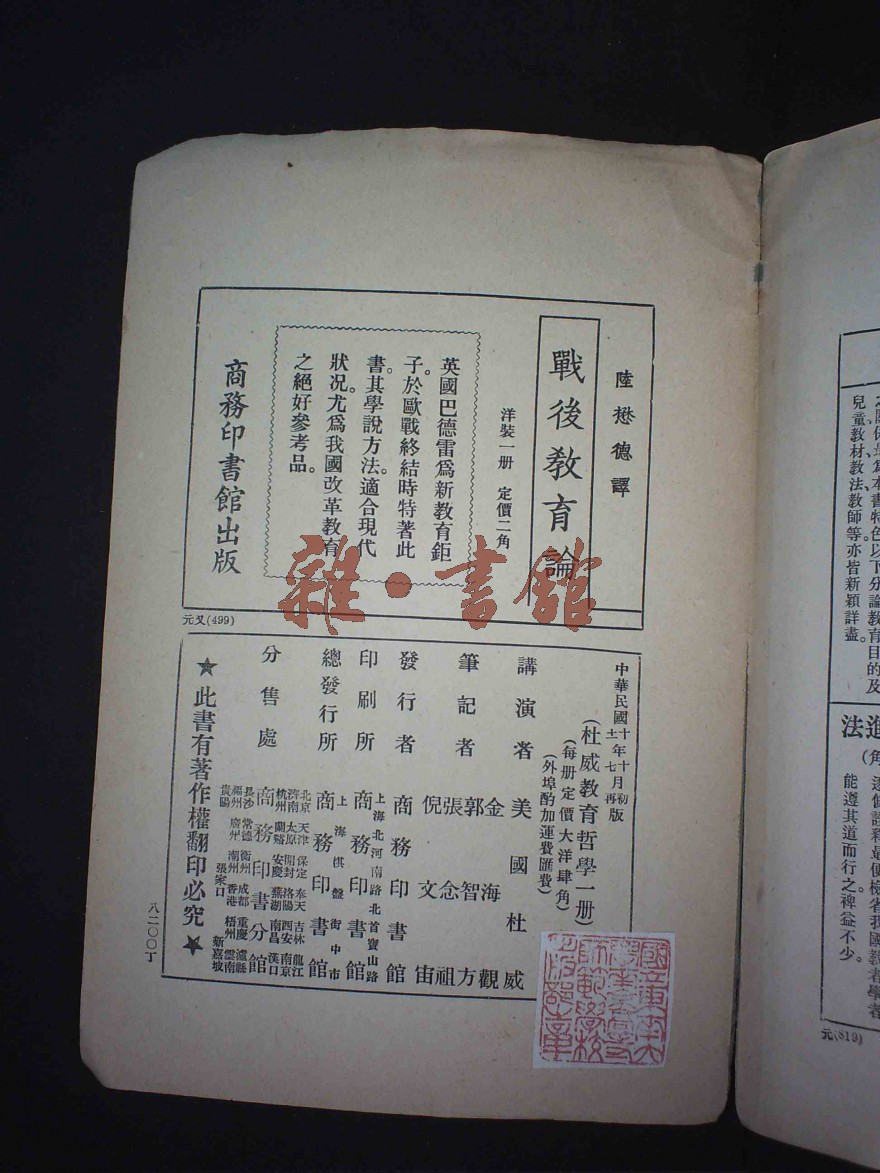 陸懋德譯
戰後教育論
洋裝一册 定價二角
英國巴德雷爲新教育鉅
子。於歐戰終結時特著此
書。其學說方法。適合現代
狀况。尤爲我國改革教育
之絕好參考品。
商務印書館出版
元又(499)
雜·書館
中華民國十年十月初版
十一 七 再
(杜威教育哲學一册)
(每册定價大洋肆角)
(外埠酌加運費匯費)
講演者 美國杜威
筆記者 金海觀
郭智方
張念祖
倪文宙
發行者 商務印書館
印刷所 上海北河南路北首寶山路
商務印書館
總發行所 上海棋盤街中市
商務印書館
分售處 北京 天津 保定 奉天 吉林 龍江
濟南 太原 開封 洛陽 西安 南京
杭州 蘭谿 安慶 蕪湖 南昌 漢口
商務印書分館
長沙 常德 衡州 成都 重慶 瀘縣
福州 廣州 潮州 香港 梧州 雲南
貴陽 張家口 新嘉坡
★此書有著作權翻印必究★
八二〇〇丁
兒童教材教法教師等。亦皆新穎詳盡。
進法
能遵其道而行之裨益不少。
元(819)